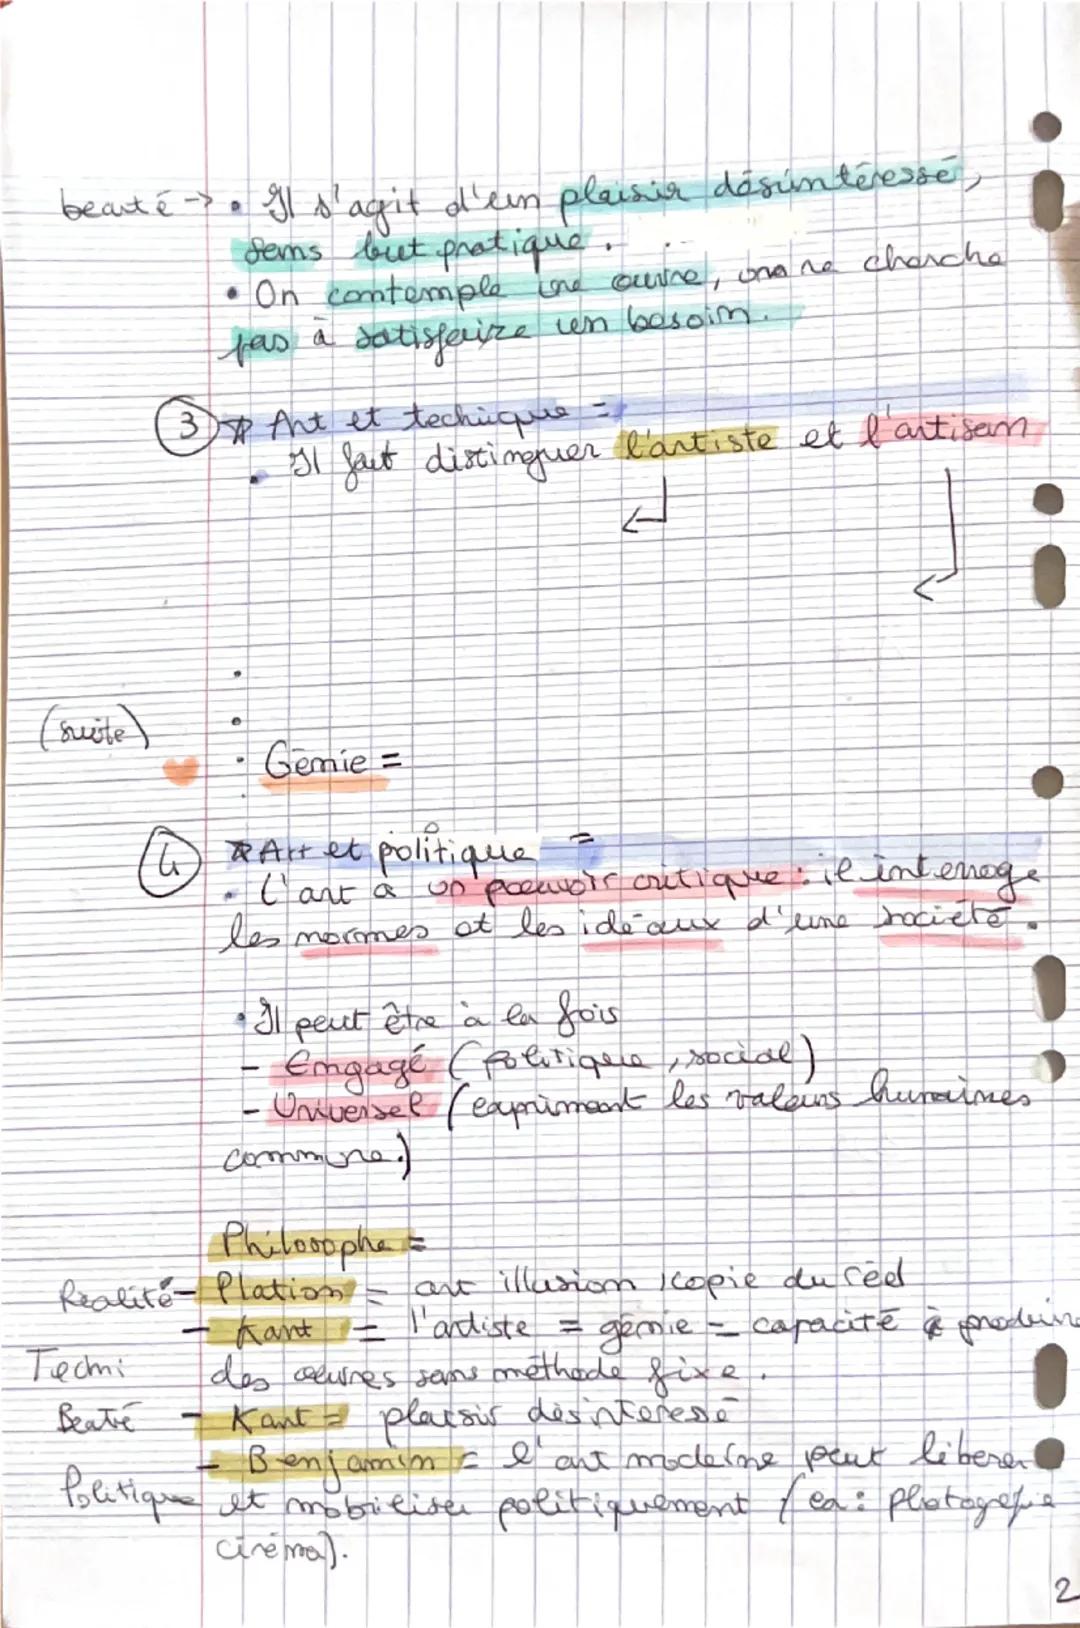 beauté → • Il s'agit d'un plaisir désintéressé,
sans but pratique.
• On contemple une œuvre, on ne cherche
pas à satisfaire un besoin.
3 * Art et technique =
• Il faut distinguer l'artiste et l'artisan
(suite)
• Génie =
4 * Art et politique =
• L'art a un pouvoir critique : il interroge
les normes et les idéaux d'une société.
• Il peut être à la fois
- Engagé (politique, social)
- Universel (exprimant les valeurs humaines
commune.)
Philosophe =
Réalité - Plation = art illusion, copie du réel
- Kant = l'artiste = génie = capacité à produire
Techni des œuvres sans méthode fixe.
Beaté - Kant = plaisir désinteressé
- Benjamin = l'art moderne peut libérer
Politique et mobiliser politiquement (ex: photografie
cinéma).
2